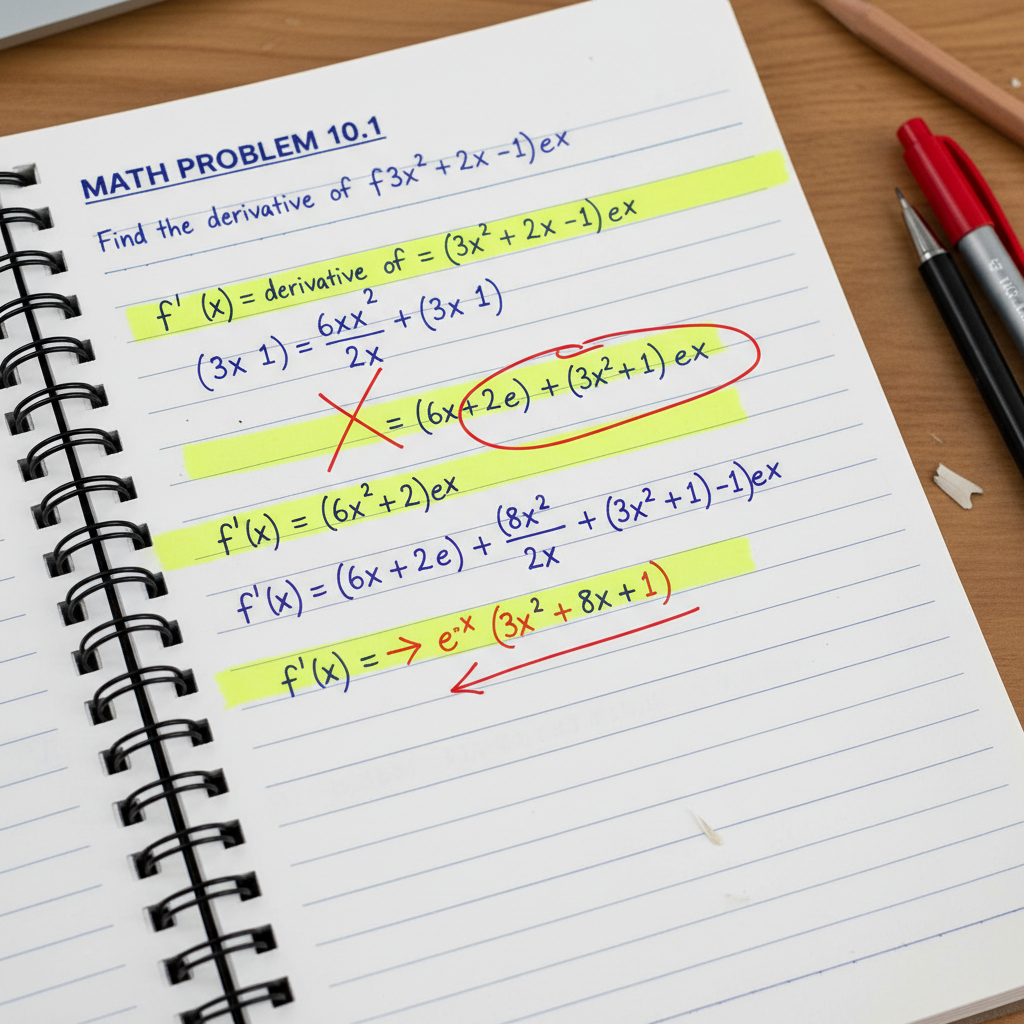 MATH PROBLEM 10.1
Find the derivative of f3x² + 2x -1) ex
f' (x) = derivative of = (3x² + 2x -1) ex
(3x 1) = 6xx²/2x + (3x 1)
= (6x+2e) + (3x²+1) ex
f'(x) = (6x² + 2)ex
f'(x) = (6x + 2e) + (8x²/2x + (3x² + 1) -1)ex
f'(x) = → e⁻ˣ (3x² + 8x + 1)